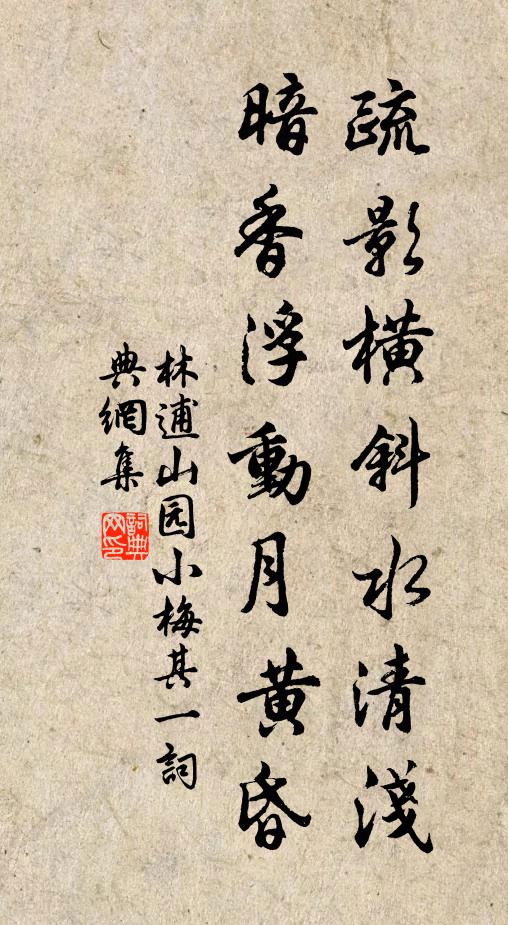 疏影橫斜水清淺
暗香浮動月黃昏
林逋山园小梅其一詞
典網集
詞典网印